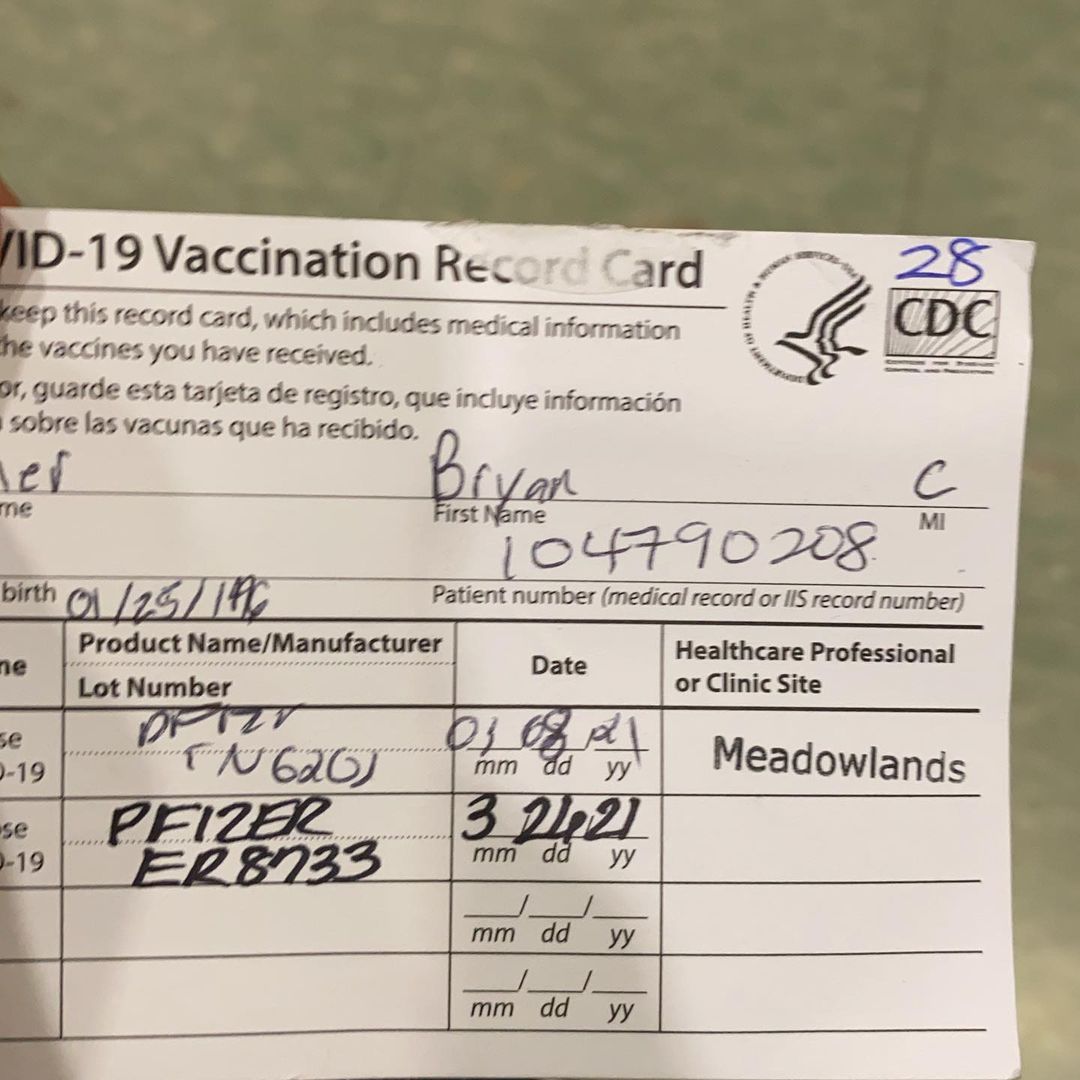 VID-19 Vaccination Record Card
28
CDC
keep this record card, which includes medical information
he vaccines you have received.
or, guarde esta tarjeta de registro, que incluye información
sobre las vacunas que ha recibido.
Bryan C
me First Name MI
104790208
birth 01/25/ Patient number (medical record or IIS record number)
ne Product Name/Manufacturer Date Healthcare Professional
Lot Number or Clinic Site
se 21 Meadowlands
-19 6201 mm dd yy
se PFIZER 3 24 21
-19 ER8733 mm dd yy
__/__/__
mm dd yy
__/__/__
mm dd yy